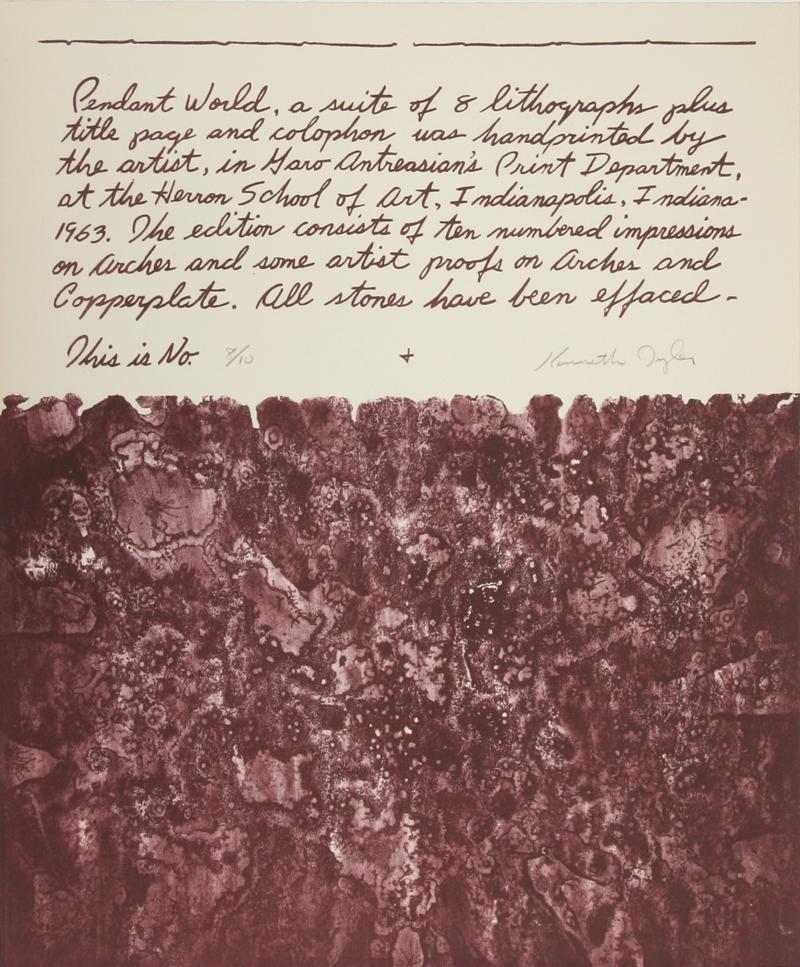 Pendant World, a suite of 8 lithographs plus
title page and colophon was handprinted by
the artist, in Garo Antreasian's Print Department,
at the Herron School of Art, Indianapolis, Indiana-
1963. The edition consists of ten numbered impressions
on Arches and some artist proofs on Arches and
Copperplate. All stones have been effaced -
This is No. /10 + Kenneth Tyler